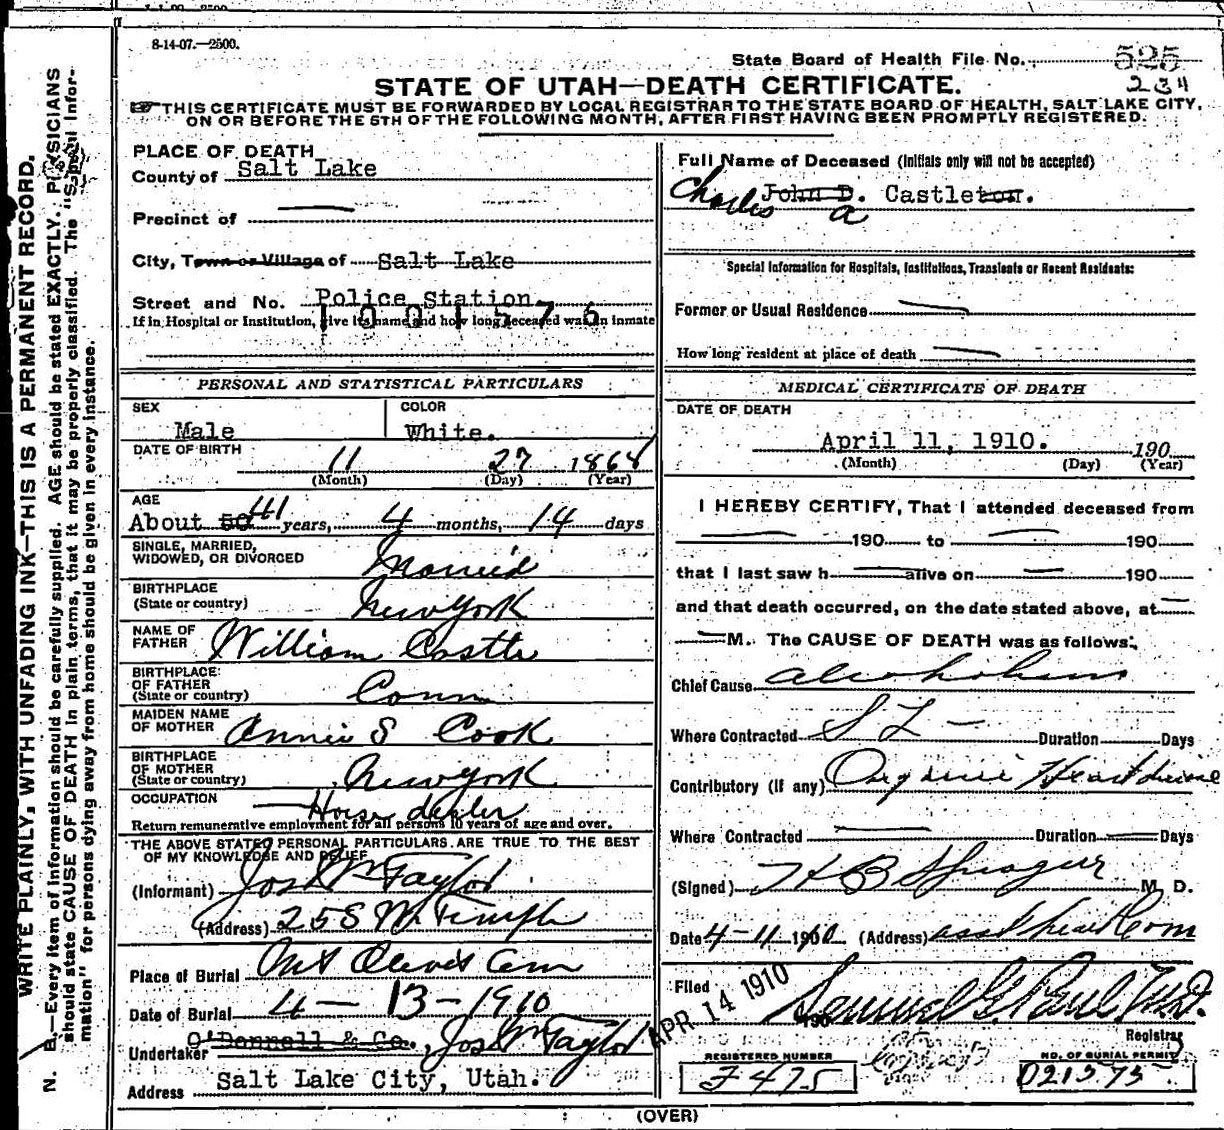 8-14-07.—2500.
State Board of Health File No. 525
234
STATE OF UTAH—DEATH CERTIFICATE.
THIS CERTIFICATE MUST BE FORWARDED BY LOCAL REGISTRAR TO THE STATE BOARD OF HEALTH, SALT LAKE CITY,
ON OR BEFORE THE 5TH OF THE FOLLOWING MONTH, AFTER FIRST HAVING BEEN PROMPTLY REGISTERED.
WRITE PLAINLY, WITH UNFADING INK—THIS IS A PERMANENT RECORD.
N. B.—Every item of information should be carefully supplied. AGE should be stated EXACTLY. PHYSICIANS
should state CAUSE OF DEATH in plain terms, that it may be properly classified. The "Special Infor-
mation" for persons dying away from home should be given in every instance.
PLACE OF DEATH
County of Salt Lake
Precinct of
City, Town or Village of Salt Lake
Street and No. Police Station
If in Hospital or Institution, give its name and how long deceased was an inmate
1001576
PERSONAL AND STATISTICAL PARTICULARS
SEX Male
COLOR White.
DATE OF BIRTH 11 27 1868
(Month) (Day) (Year)
AGE
About 50 41 years, 4 months, 14 days
SINGLE, MARRIED,
WIDOWED, OR DIVORCED Married
BIRTHPLACE
(State or country) New York
NAME OF
FATHER William Castle
BIRTHPLACE
OF FATHER
(State or country) Conn
MAIDEN NAME
OF MOTHER Annie S Cook
BIRTHPLACE
OF MOTHER
(State or country) New York
OCCUPATION Horse dealer
Return remunerative employment for all persons 10 years of age and over.
THE ABOVE STATED PERSONAL PARTICULARS ARE TRUE TO THE BEST
OF MY KNOWLEDGE AND BELIEF
(Informant) Jos Wm Taylor
(Address) 25 S W. Temple
Place of Burial Mt Olivet Cem
Date of Burial 4-13-1910
Undertaker O'Donnell & Co., Jos Wm Taylor
Address Salt Lake City, Utah.
Full Name of Deceased (Initials only will not be accepted)
John D. Castleton.
Charles a
Special Information for Hospitals, Institutions, Transients or Recent Residents:
Former or Usual Residence
How long resident at place of death
MEDICAL CERTIFICATE OF DEATH
DATE OF DEATH
April 11, 1910. 190
(Month) (Day) (Year)
I HEREBY CERTIFY, That I attended deceased from
190 to 190
that I last saw h alive on 190
and that death occurred, on the date stated above, at
M. The CAUSE OF DEATH was as follows:
Chief Cause alcoholism
Where Contracted S L Duration Days
Contributory (If any) Organic Heart disease
Where Contracted Duration Days
(Signed) H B Sprague M. D.
Date 4-11-1910 (Address) asst health Com
Filed APR 14 1910 190 Samuel G. Paul M.D.
Registrar
REGISTERED NUMBER
F 475
NO. OF BURIAL PERMIT
D21573
(OVER)